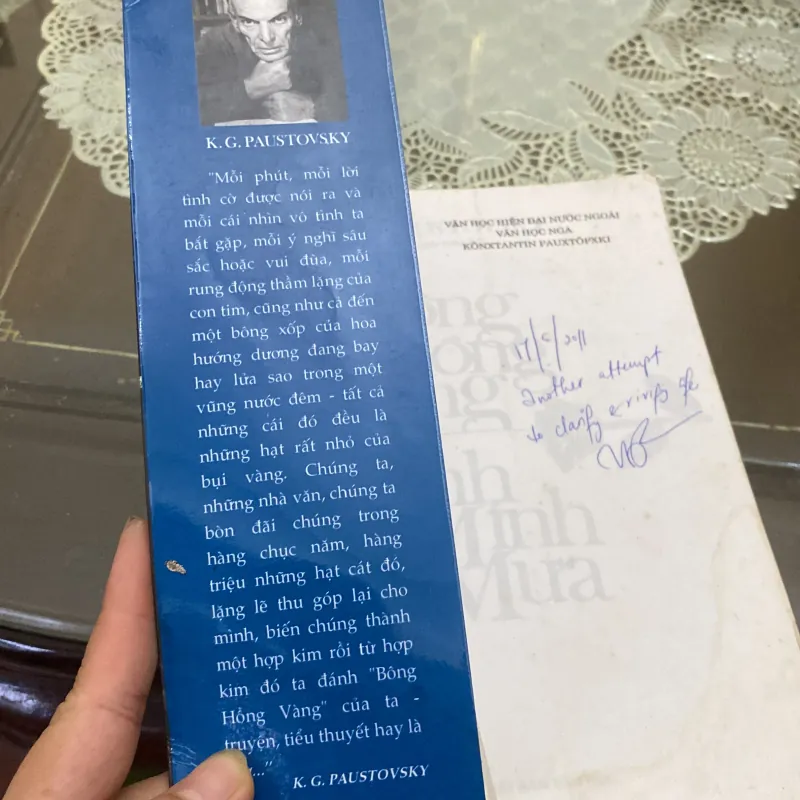 K. G. PAUSTOVSKY
"Mỗi phút, mỗi lời
tình cờ được nói ra và
mỗi cái nhìn vô tình ta
bắt gặp, mỗi ý nghĩ sâu
sắc hoặc vui đùa, mỗi
rung động thầm lặng của
con tim, cũng như cả đến
một bông xốp của hoa
hướng dương đang bay
hay lửa sao trong một
vũng nước đêm - tất cả
những cái đó đều là
những hạt rất nhỏ của
bụi vàng. Chúng ta,
những nhà văn, chúng ta
bòn đãi chúng trong
hàng chục năm, hàng
triệu những hạt cát đó,
lặng lẽ thu góp lại cho
mình, biến chúng thành
một hợp kim rồi từ hợp
kim đó ta đánh "Bông
Hồng Vàng" của ta -
truyện, tiểu thuyết hay là
..."
K. G. PAUSTOVSKY
VĂN HỌC HIỆN ĐẠI NƯỚC NGOÀI
VĂN HỌC NGA
KÔNXTANTIN PAUXTÔPXKI
Another attempt
to clarify
Minh
Mưa